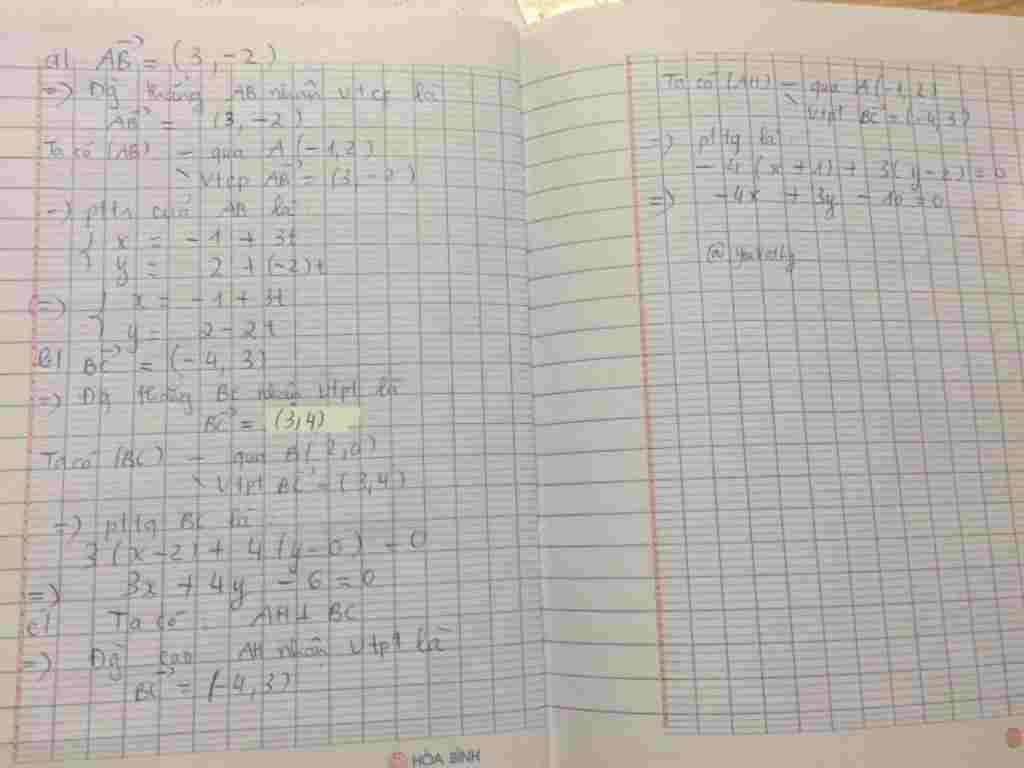 a) AB→ = (3, -2)
=> Đg thẳng AB nhận vtcp là
AB→ = (3, -2)
Ta có (AB) - qua A(-1, 2)
- Vtcp AB→ = (3, -2)
=> ptts của AB là
{ x = -1 + 3t
{ y = 2 + (-2)t
(=) { x = -1 + 3t
{ y = 2 - 2t
b) BC→ = (-4, 3)
=> Đg thẳng BC nhận Vtpt là
BC→ = (3,4)
Ta có (BC) - qua B(2, 0)
- Vtpt BC→ = (3, 4)
=> pttq BC là
3(x-2) + 4(y-0) = 0
=> 3x + 4y - 6 = 0
c) Ta có: AH ⊥ BC
=> Đg cao AH nhận Vtpt là
BC→ = (-4, 3)
HÒA BÌNH
Ta có (AH) - qua A(-1, 2)
- Vtpt BC→ = (-4, 3)
=> pttq là:
-4(x + 1) + 3(y-2) = 0
=> -4x + 3y - 10 = 0